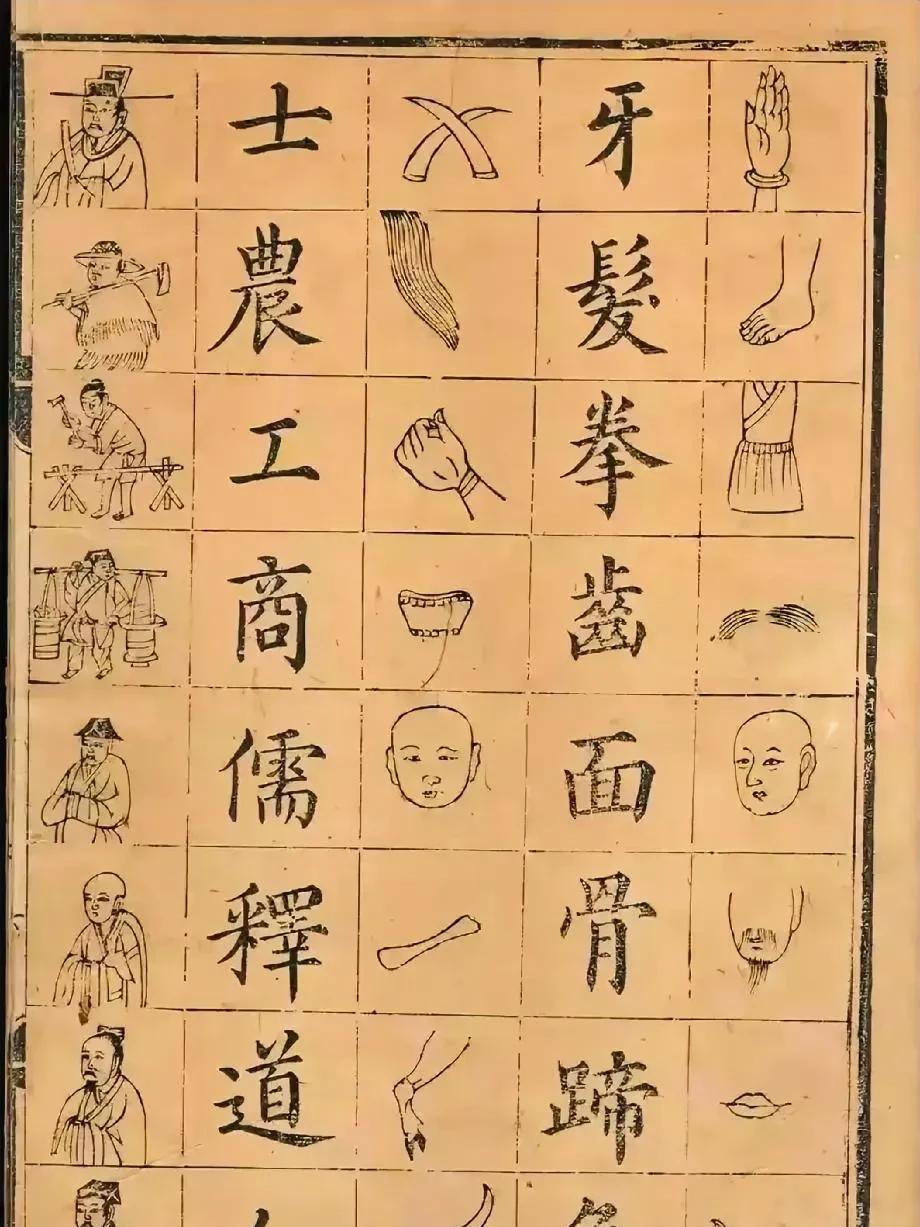 牙髮拳齒面骨蹄
士農工商儒釋道